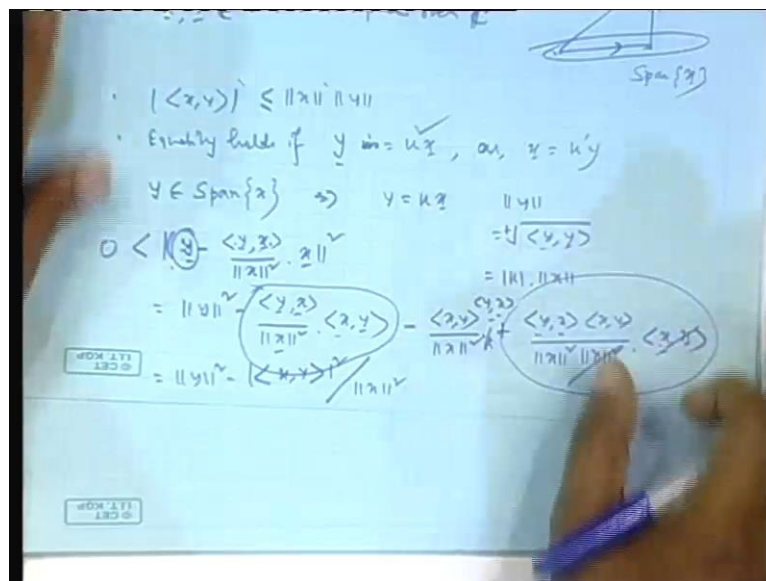 Span{x}
· |<x,y>| ≤ ||x|| ||y||
· Equality holds if y = kx, or, x = k'y
y ∈ Span{x} ⇒ y = kx ||y||
= +√<y,y>
= |k|.||x||
0 < ||y - <y,x>/||x||² . x||²
= ||y||² - <y,x>/||x||² . <x,y> - <x,y>/||x||² <y,x> + <y,x> <x,y>/||x||² ||x||² . <x,x>
= ||y||² - |<x,y>|²/||x||²
© CET
I.I.T. KGP
© CET
I.I.T. KGP